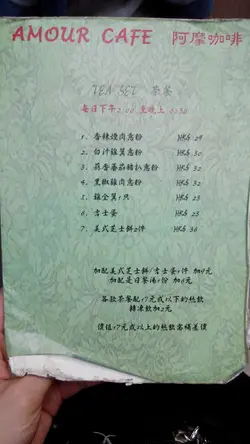 AMOUR CAFE 阿摩咖啡
TEA SET 茶餐
每日下午2:00 至晚上
1. 香辣燒肉意粉 HK$ 29
2. 白汁雞翼意粉 HK$ 30
3. 蒜香蕃茄豬扒意粉 HK$ 32
4. 黑椒雞肉意粉 HK$ 32
5. 雞全翼1只 HK$ 23
6. 吉士蛋 HK$ 23
7. 美式芝士餅2件 HK$ 38
加配美式芝士餅/吉士蛋1件 加
加配是日餐湯1份 加8元
各款茶餐配17元或以下的熱飲
轉凍飲加2元
價位17元或以上的熱飲需補差價